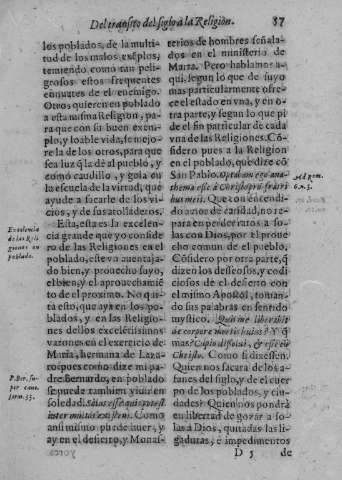 Del transito del siglo à la Religion. 87
los poblados, de la multi-
tud de los malos exẽplos,
temiendo como tan peli-
grosos estos frequentes
conuates del enemigo.
Otros quieren en poblado
a esta misma Religion, pa-
ra que con su buen exem-
plo, y loable vida, se mejo-
re la de los otros, para que
sea luz q̃ la dè al pueblo, y
como caudillo, y guia en
la escuela de la virtud, que
ayude a sacarle de los vi-
cios, y de sus atolladeros.
Esta, esta es la excelen-
cia grande que yo conside-
ro de las Religiones en el
poblado, este vn auentaja-
do bien, y prouecho suyo, el
bien, y el aprouechamiẽ-
to del proximo. No qui-
ta esto, que aya en los po-
blados, y en las Religio-
nes dellos excelẽtissimos
varones en el exercicio de
Maria, hermana de Laza-
ro: pues como dize mi pa-
dre Bernardo, en poblado
se puede tambien viuir en
soledad: Solus esse quis potest
inter multos existens. Como
ansi mismo puede auer, y
ay en el desierto, y Monas-
Excelencia
de las Reli
giones en
poblado.
P. Ber. su-
per cant.
serm. 35.
terios de hombres señala-
dos en el ministerio de
Marta. Pero hablamos a-
qui, segun lo que de suyo
mas particularmente ofre-
ce el estado en vna, y en o-
tra parte, y segun lo que pi
de el fin particular de cada
vna de las Religiones. Cõ-
sidero pues a la Religion
en el poblado, que dize cõ
San Pablo. Optabam ego ana-
thema esse à Christo pro fratri
bus meis. Que con encendi-
do amor de caridad, no re-
para en perder ratos a so-
las con Dios, por el proue-
cho comun de el pueblo.
Cõsidero por otra parte, q̃
dizen los desseosos, y codi
ciosos de el desierto con
el mismo Apostol, toman-
do sus palabras en sentido
mystico. Quis me liberabit
de corpore mortis huius? Y q̃
mas? Cupio dissolui, & esse cũ
Christo. Como si dixessen.
Quien nos sacara de los a-
fanes del siglo, y de el cuer
po de los poblados, y ciu-
dades? Quien nos pondrà
en libertad de gozar a so-
las a Dios, quitadas las li-
gaduras, è impedimentos
Ad Rom.
D 5 de